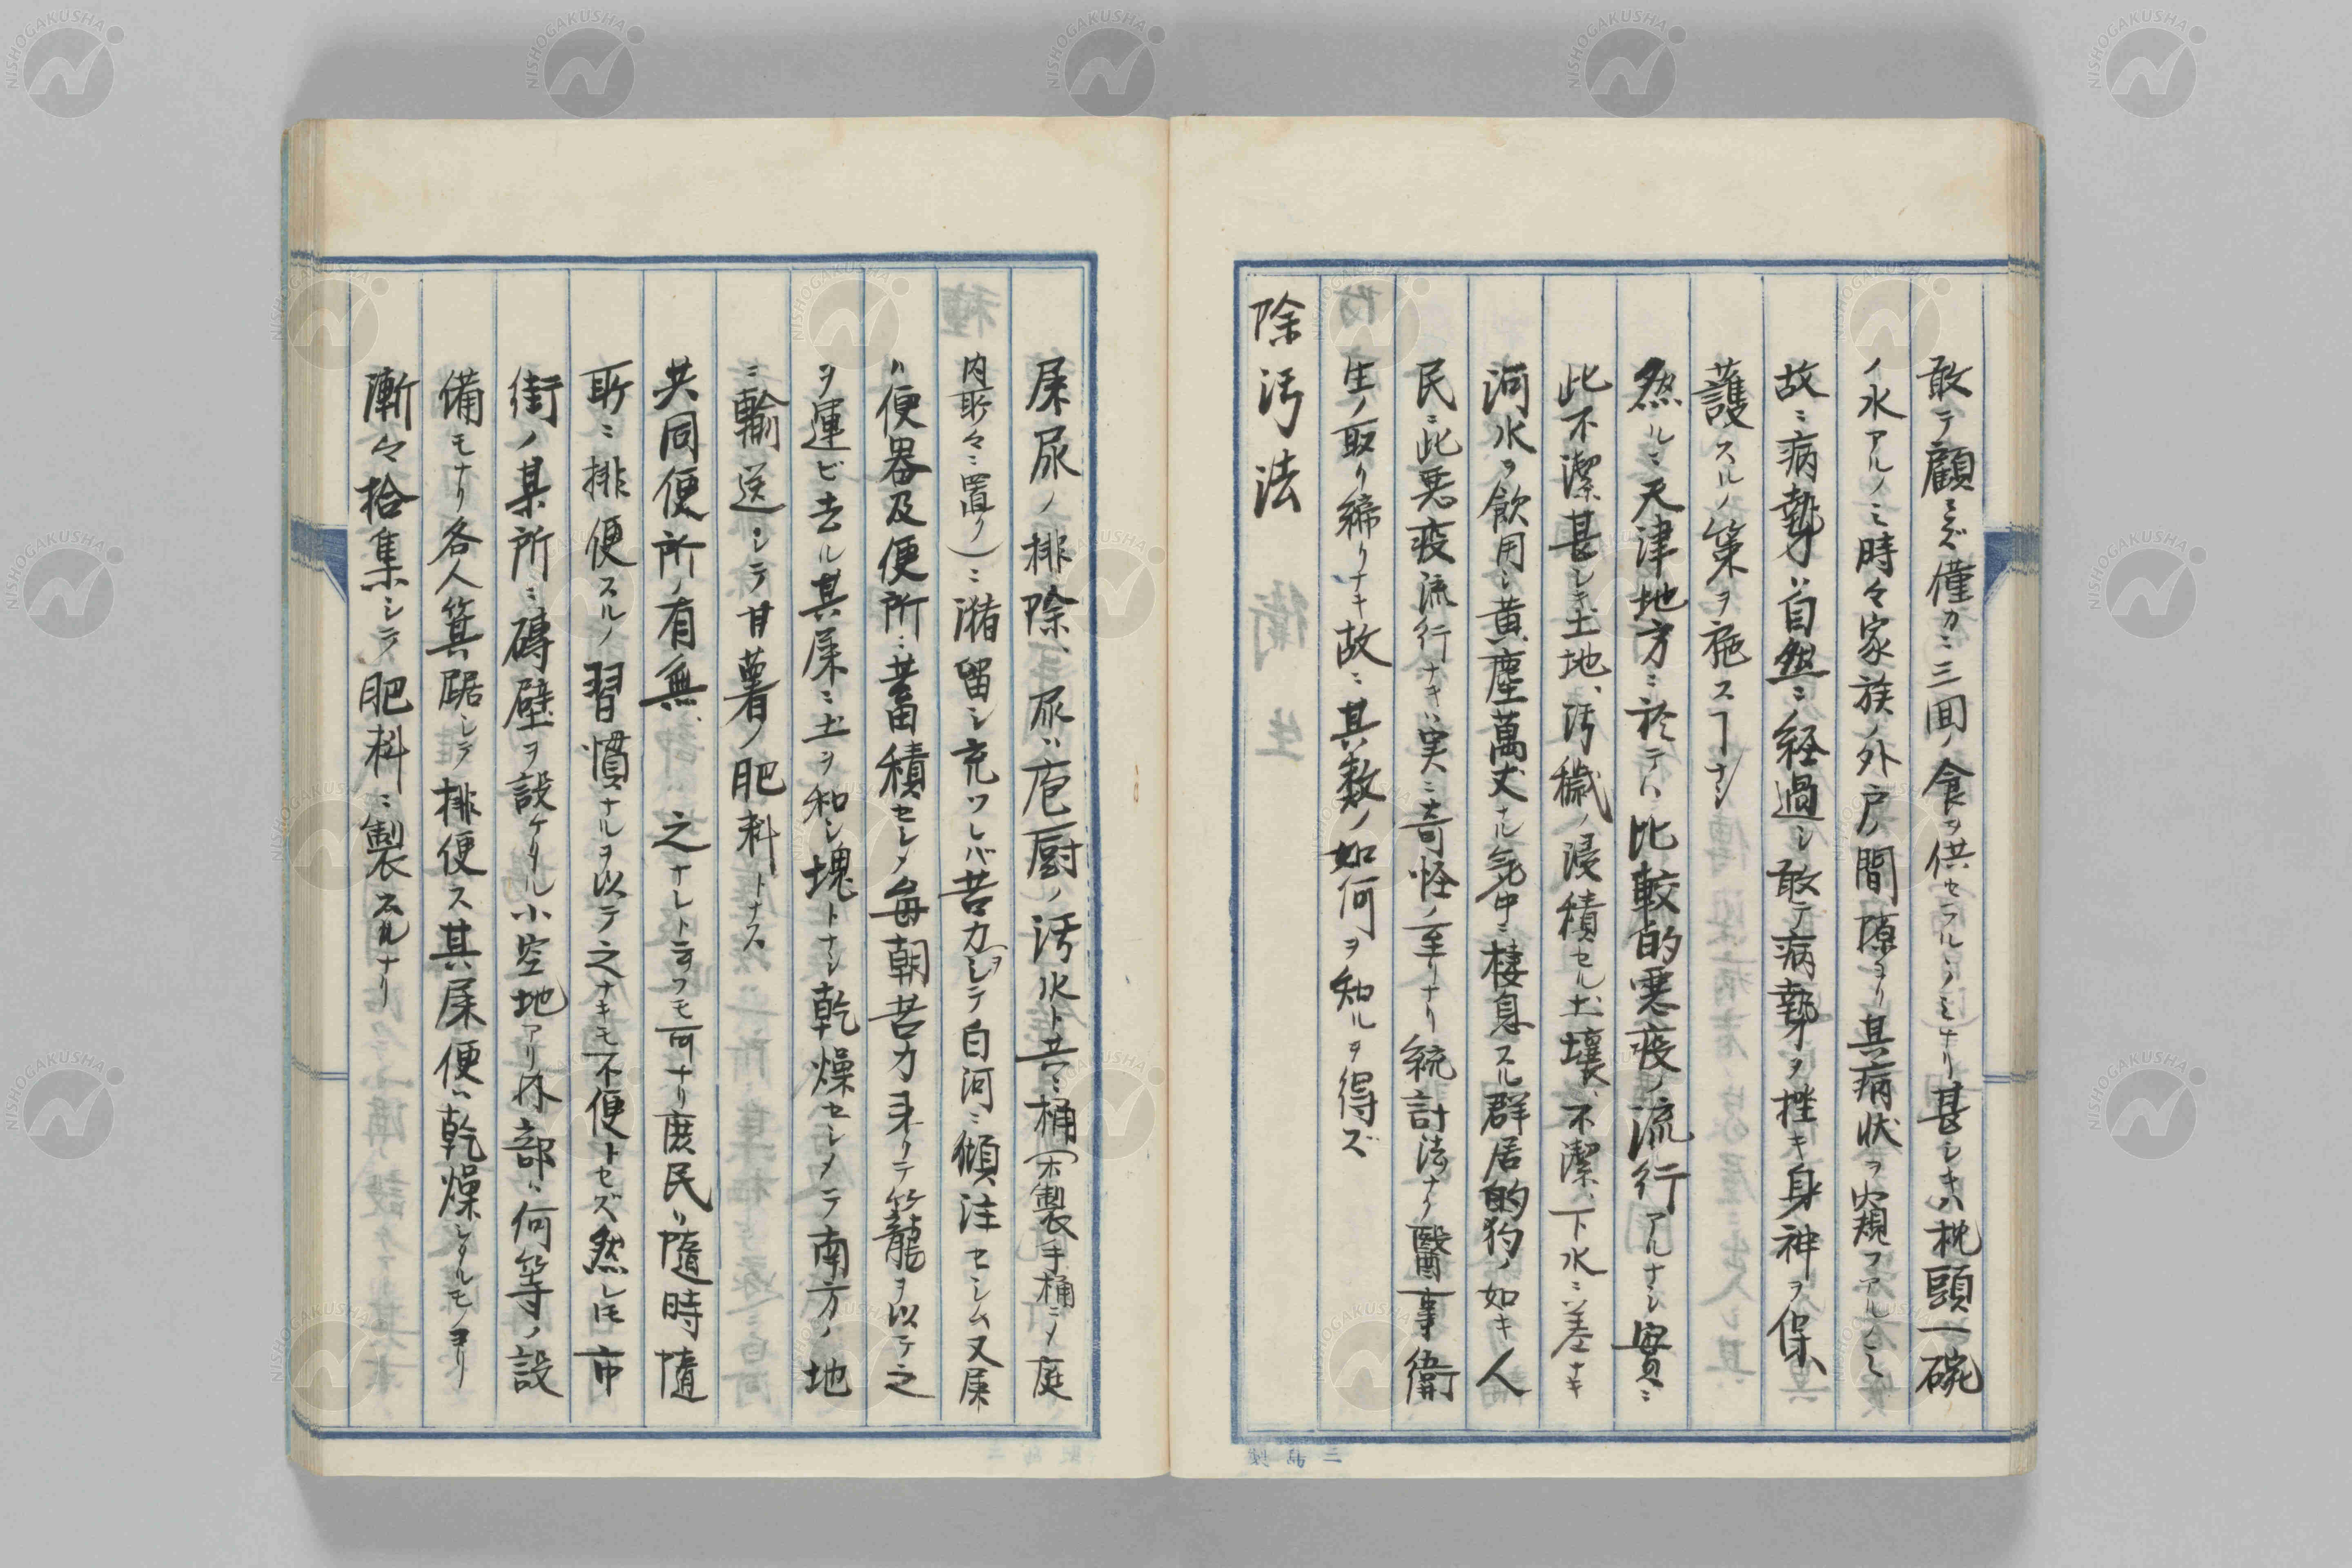 敢テ顧ミズ僅カニ三回ノ食ヲ供セラルヽノミナリ甚シキハ枕頭一碗
ノ水アルノミ時々家族ノ外戸ノ間隙ヨリ其病状ヲ窺フアルノミ
故ニ病勢ハ自然ニ経過シ敢テ病勢ヲ挫キ身神ヲ保
護スルノ策ヲ施スヿナシ
然ルニ天津地方ニ於テハ比較的悪疫ノ流行アルナシ實ニ
此不潔甚シキ土地、汚穢ノ浸積セル土壌、不潔、下水ニ差ナキ
河水ヲ飲用シ黄塵萬丈ナル気中ニ棲息スル群居的豹ノ如キ人
民ニ此悪疫流行ナキハ実ニ奇怪ノ至リナリ統計法ナク醫事衛
生ノ取リ締リナキ故ニ其数ノ如何ヲ知ルヲ得ズ
除汚法
屎尿ノ排除、尿ハ庖厨ノ汚水ト共ニ桶(木製手桶ニノ庭
内所々ニ置ク)ニ潴留シ充ツレバ苦力(ヲ)シテ白河ニ傾注セシム又屎
ハ便器及便所ニ蓄積セシメ毎朝苦力来リテ籠ヲ以テ之
ヲ運ビ去ル其屎ニ土ヲ和シ塊トナシ乾燥セシメテ南方ノ地
ニ輸送シテ甘薯ノ肥料トナス
共同便所ノ有無、之ナシト云フモ可ナリ庶民ハ隨時隨
所ニ排便スルノ習慣ナルヲ以テ之ナキモ不便トセズ然レ𪜈市
街ノ某所ニ磚壁ヲ設ケタル小空地アリ外部ハ何等ノ設
備モナリ各人箕踞シテ排便ス其屎便ハ乾燥シタルモノヨリ
漸々拾集シテ肥料ニ製スルナリ
NISHOGAKUSHA